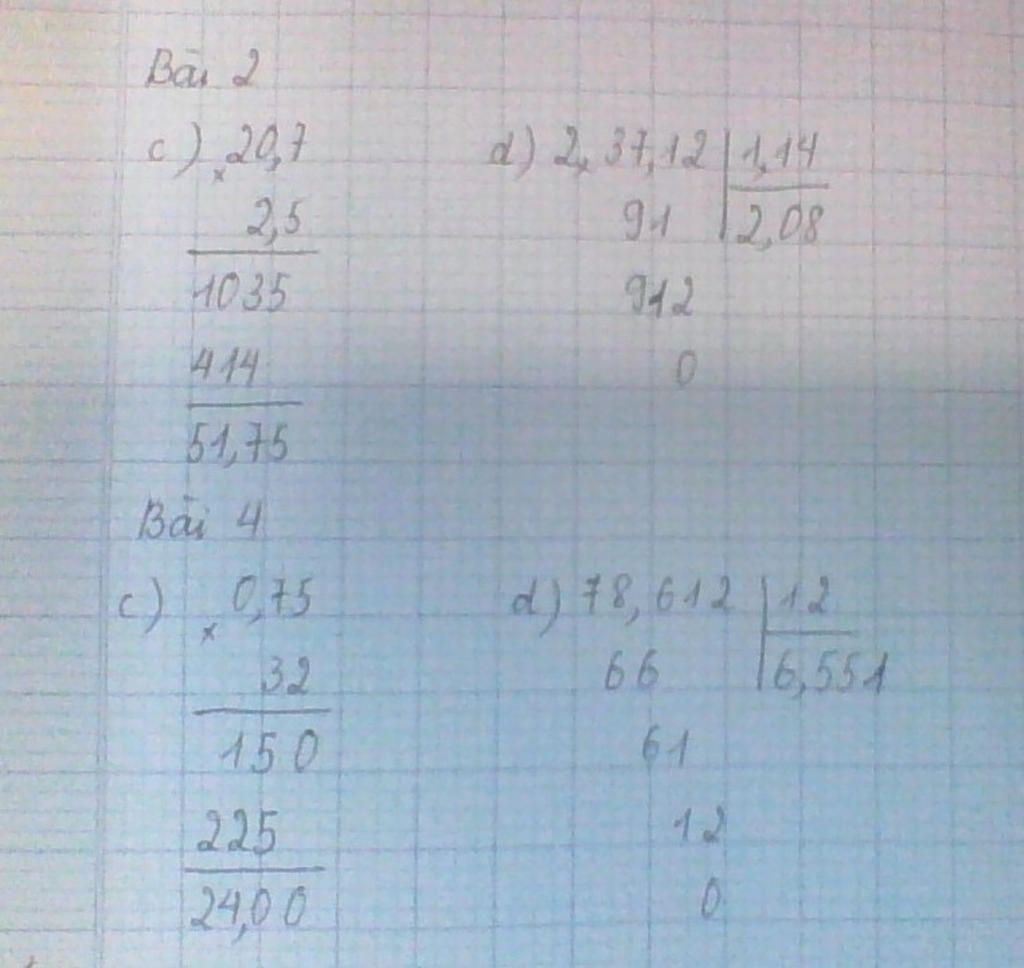 Bài 2
c) × 20,7 d) 2,37,12 | 1,14
2,5 91 | 2,08
1035 912
414 0
51,75
Bài 4
c) × 0,75 d) 78,612 | 12
32 66 | 6,551
150 61
225 12
24,00 0